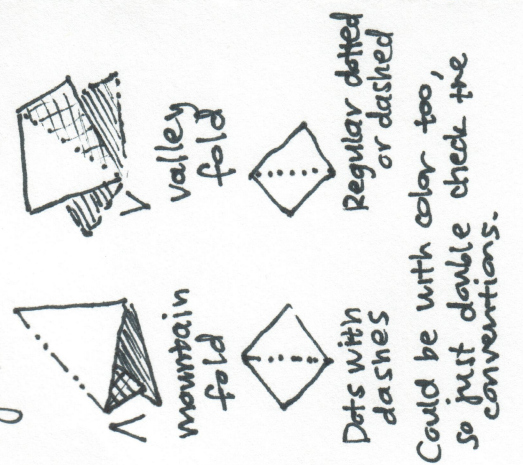 mountain
fold
valley
fold
Dots with
dashes
Regular dotted
or dashed
Could be with color too,
so just double check the
conventions.